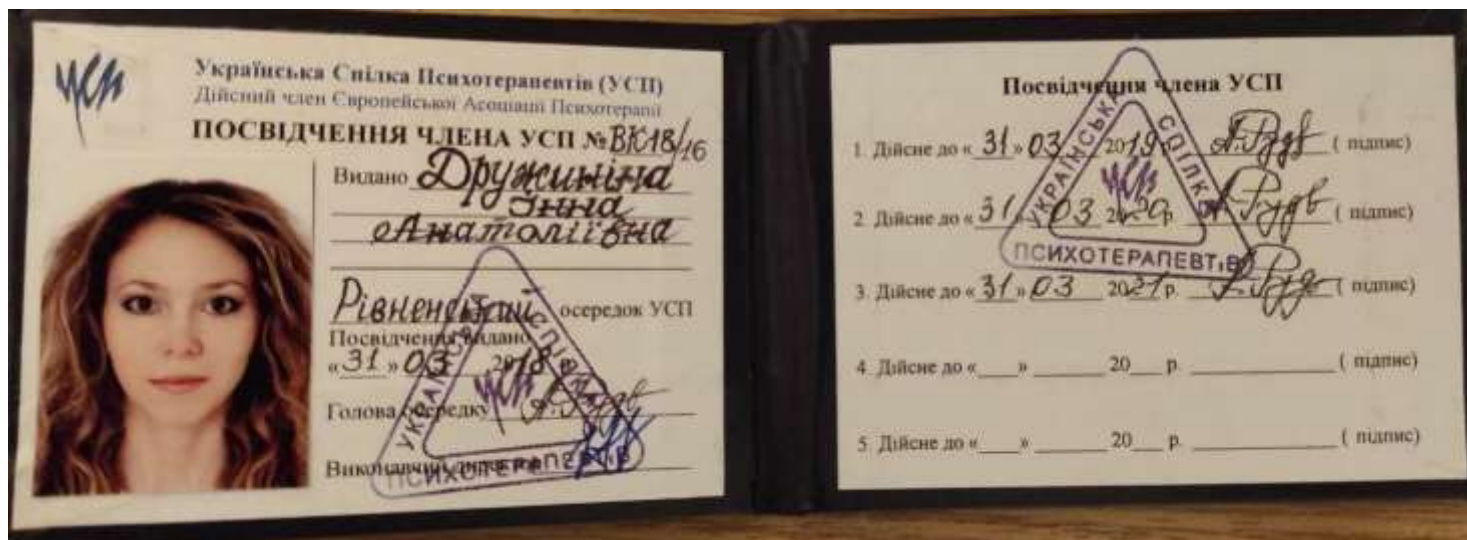 УСП
Українська Спілка Психотерапевтів (УСП)
Дійсний член Європейської Асоціації Психотерапії
ПОСВІДЧЕННЯ ЧЛЕНА УСП № ВК18/16
Видано Дружиніна
Інна
Анатоліївна
Рівненський осередок УСП
Посвідчення видано
«31» 03 2018 р.
Голова осередку
Виконавчий
УКРАЇНСЬКА СПІЛКА ПСИХОТЕРАПЕВТІВ
Посвідчення члена УСП
1. Дійсне до «31» 03 2019 р. (підпис)
2. Дійсне до «31» 03 2020 р. (підпис)
3. Дійсне до «31» 03 2021 р. (підпис)
4. Дійсне до «___» ______ 20___ р. ____________ (підпис)
5. Дійсне до «___» ______ 20___ р. ____________ (підпис)
УКРАЇНСЬКА СПІЛКА ПСИХОТЕРАПЕВТІВ